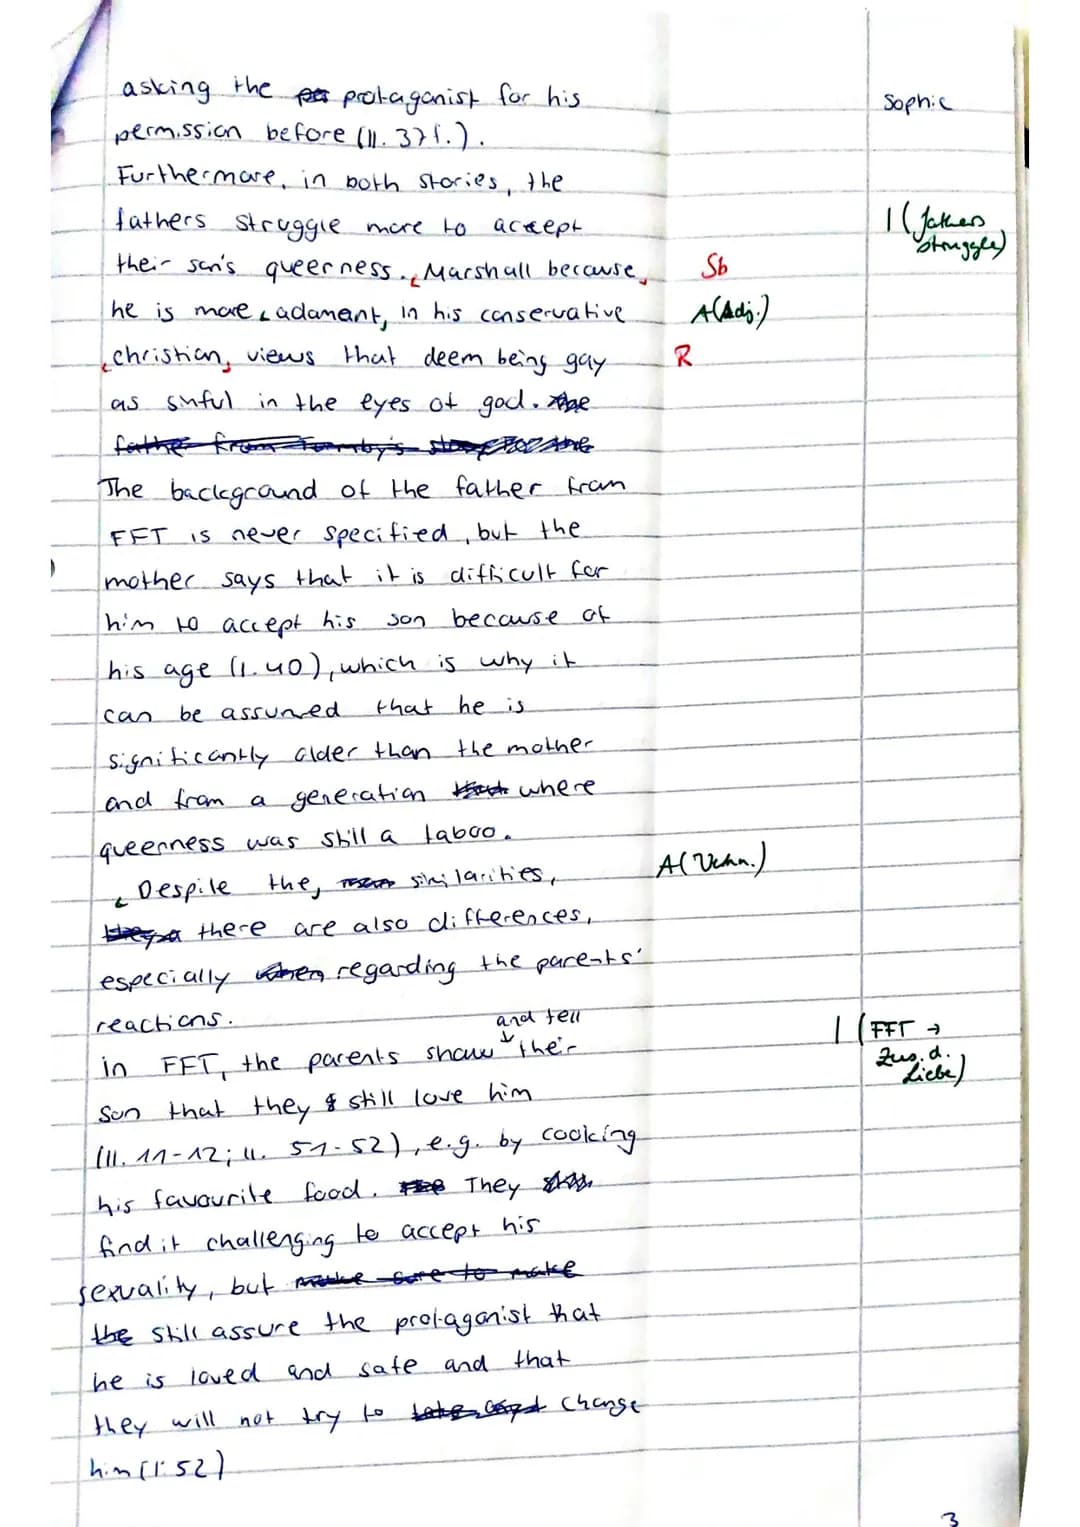 Sophie
asking the protagonist for his
permission before (ll. 37f.).
Furthermore, in both stories, the
fathers struggle more to accept
1 (fathers
struggle)
their son's queerness. Marshall because
Sb
he is more adamant, in his conservative
A (Adj.)
christian, views that deem being gay
R
as sinful in the eyes of god. The
father from
The background of the father from
FFT is never specified, but the
mother says that it is difficult for
him to accept his son because of
his age (l. 40), which is why it
can be assumed that he is
significantly older than the mother
and from a generation where
queerness was still a taboo.
Despite the, similarities,
A (Vchn.)
there are also differences,
especially when regarding the parents'
reactions.
and tell
in FFT, the parents show their
1 (FFT →
Zus. d.
Liebe)
son that they still love him
(ll. 11-12; ll. 51-52), e.g. by cooking
his favourite food. They
find it challenging to accept his
sexuality, but make sure to make
the still assure the protagonist that
he is loved and safe and that
they will not try to change
him (l. 52)
3